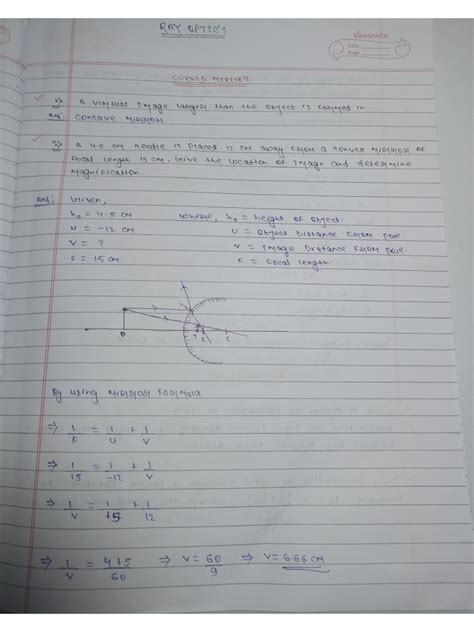 RAY OPTIC'S
classmate
Date
Page
CURVED MIRROR'S
1) A virtual Image larger than the object is formed in
Ans: concave mirror
2) A 4.5 cm needle is placed 12 cm away from a convex mirror of
focal length 15 cm. Give the location of Image and determine
magnification.
Ans: Given,
h₀ = 4.5 cm where, h₀ = height of object.
u = -12 cm u = Object Distance from pole
v = ? v = Image Distance from pole.
F = 15 cm F = Focal length.
O I F C
By using mirror Formula
⇒ 1/F = 1/u + 1/v
⇒ 1/15 = 1/-12 + 1/v
⇒ 1/v = 1/+15 + 1/12
⇒ 1/v = 4+5/60 ⇒ v = 60/9 ⇒ v = 6.66 cm